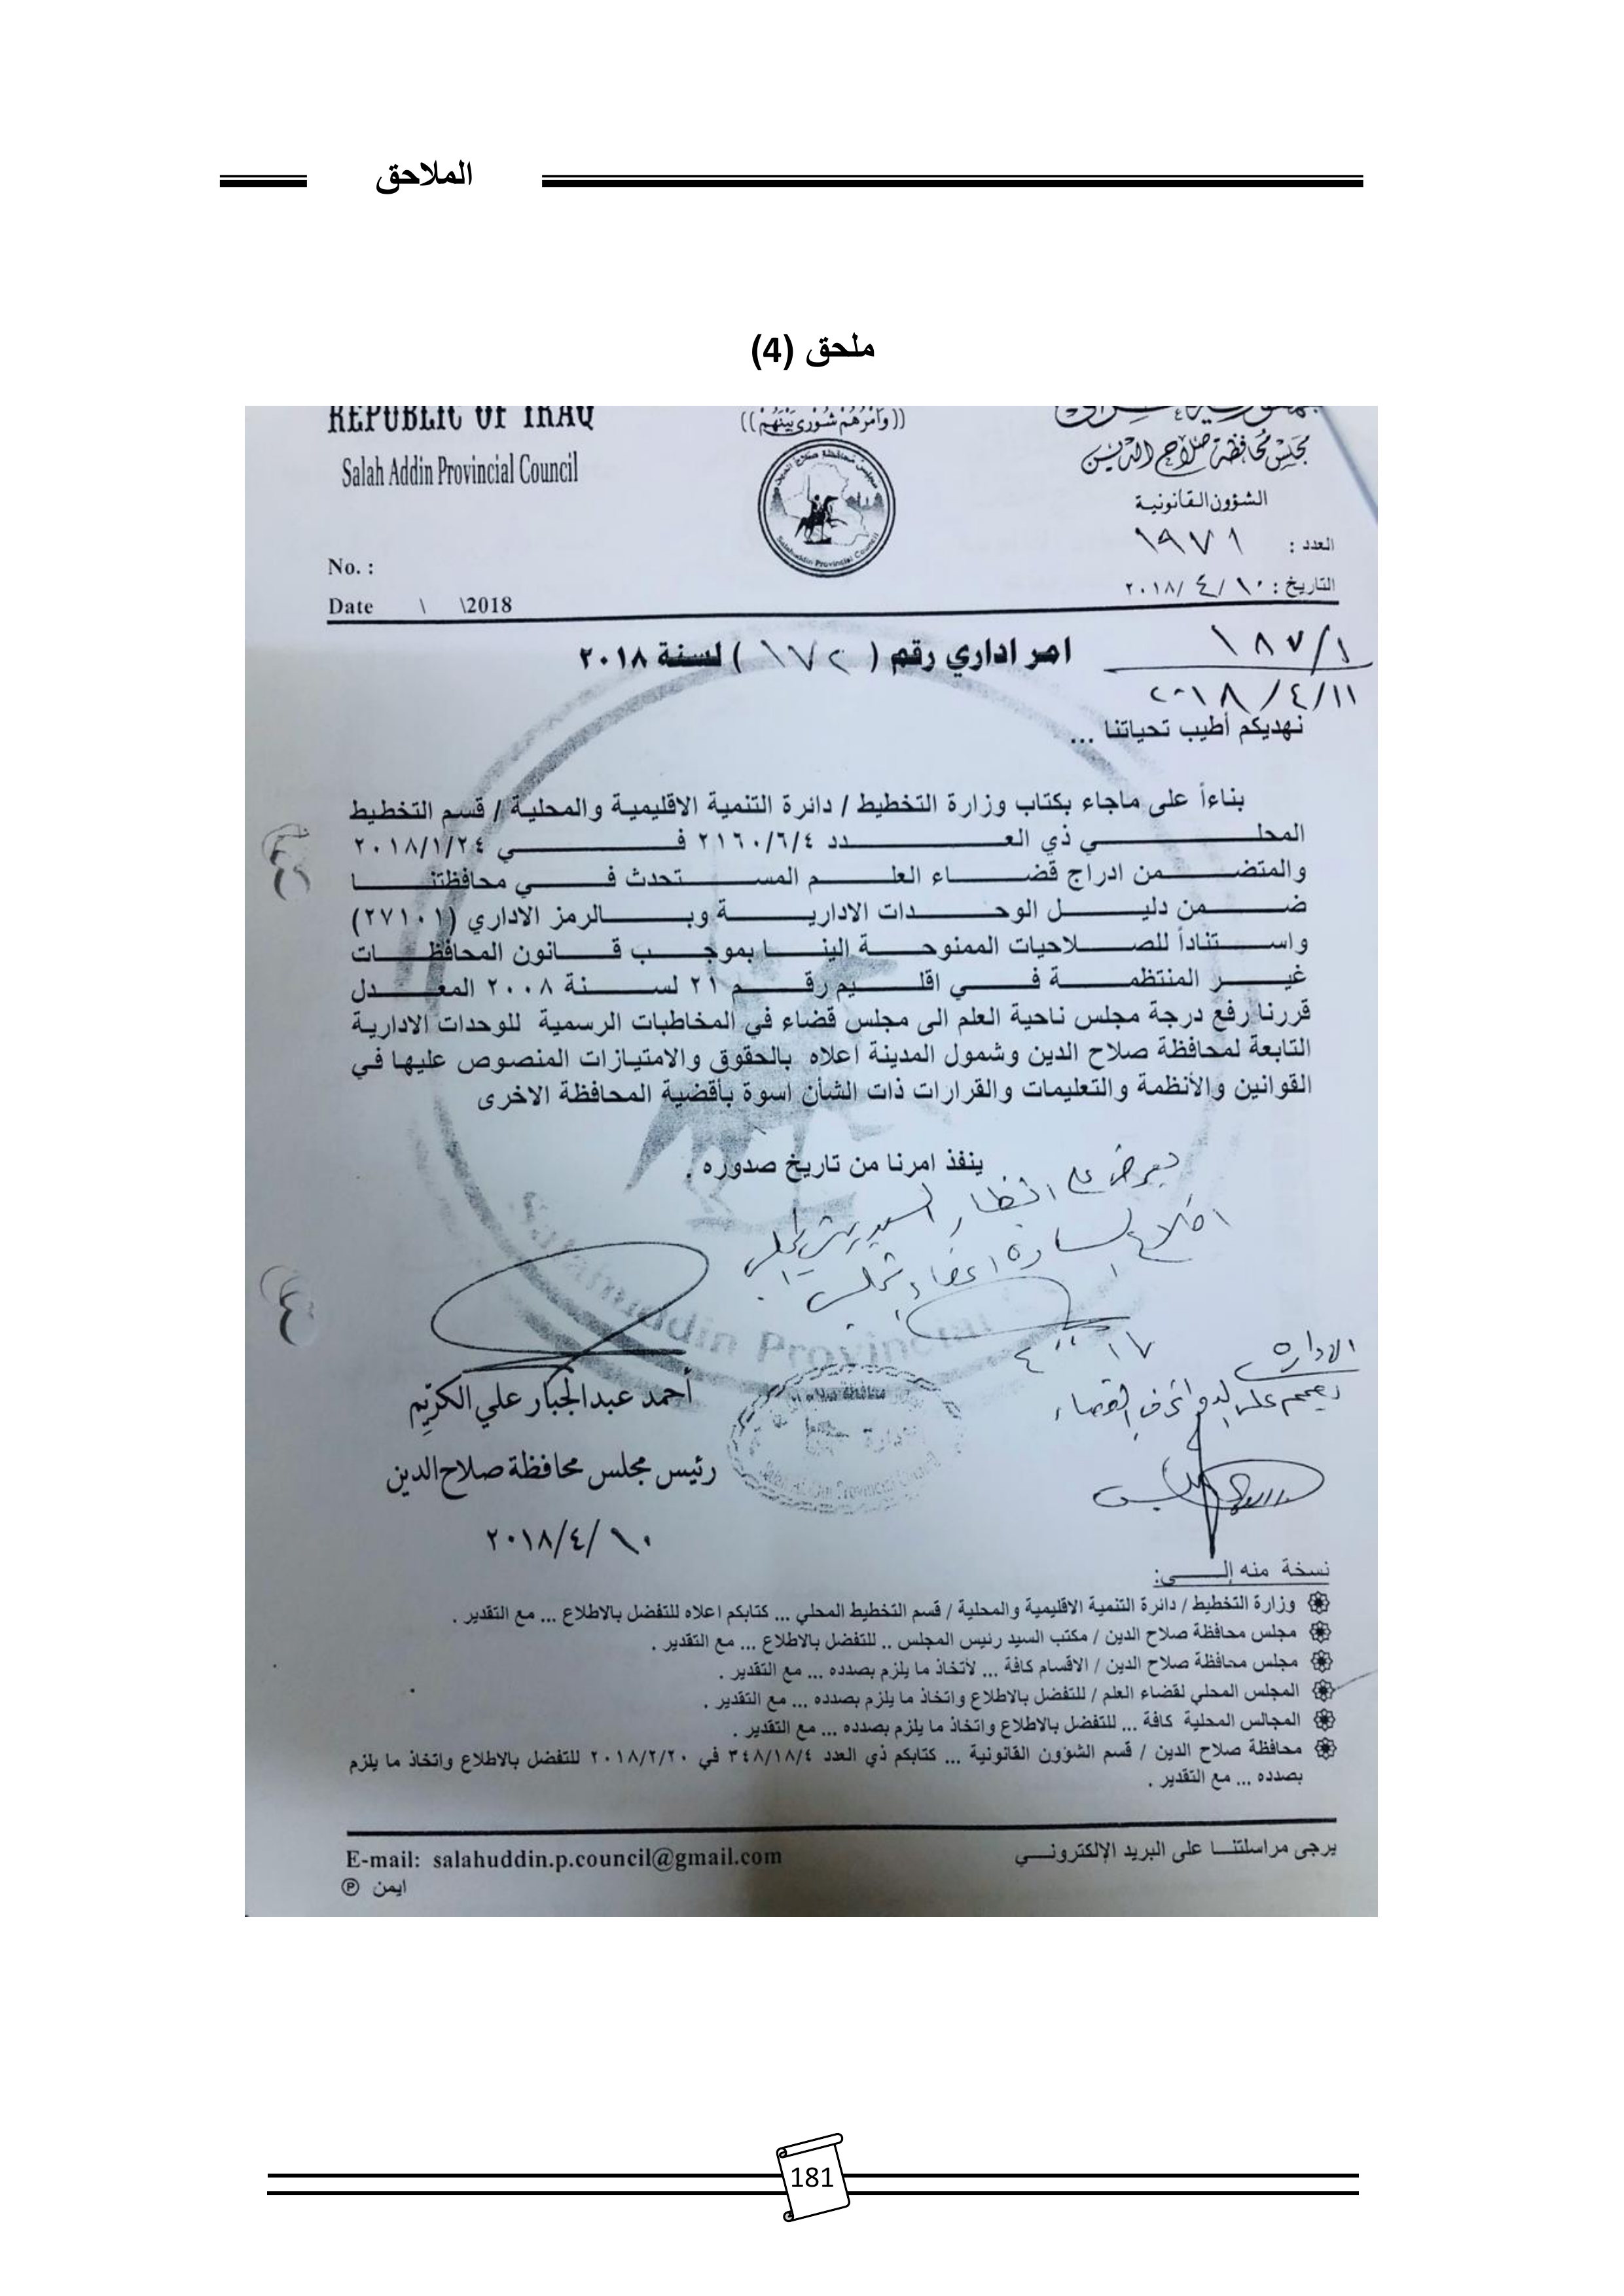 الملاحق
ملحق (4)
REPUBLIC OF IRAQ
Salah Addin Provincial Council
((وَأَمْرُهُمْ شُورَى بَيْنَهُمْ))
مجلس محافظة صلاح الدين
الشؤون القانونية
العدد : ١٩٧١
التاريخ : ١٠ / ٤ / ٢٠١٨
No. :
Date \ \2018
Salahuddin Provincial Council
امر اداري رقم ( ١٧٢ ) لسنة ٢٠١٨
١٨٧/١
٢٠١٨/٤/١١
نهديكم أطيب تحياتنا ...
بناءاً على ماجاء بكتاب وزارة التخطيط / دائرة التنمية الاقليمية والمحلية / قسم التخطيط
المحلي ذي العدد ٢١٦٠/٦/٤ في ٢٠١٨/١/٢٤
والمتضمن ادراج قضاء العلم المستحدث في محافظتنا
ضمن دليل الوحدات الادارية وبالرمز الاداري (٢٧١٠١)
واستناداً للصلاحيات الممنوحة الينا بموجب قانون المحافظات
غير المنتظمة في اقليم رقم ٢١ لسنة ٢٠٠٨ المعدل
قررنا رفع درجة مجلس ناحية العلم الى مجلس قضاء في المخاطبات الرسمية للوحدات الادارية
التابعة لمحافظة صلاح الدين وشمول المدينة اعلاه بالحقوق والامتيازات المنصوص عليها في
القوانين والأنظمة والتعليمات والقرارات ذات الشأن اسوة بأقضية المحافظة الاخرى
ينفذ امرنا من تاريخ صدوره .
الادارة
أحمد عبدالجبار علي الكريّم
رئيس مجلس محافظة صلاح الدين
٢٠١٨/٤/١٠
نسخة منه إلــى:
وزارة التخطيط / دائرة التنمية الاقليمية والمحلية / قسم التخطيط المحلي ... كتابكم اعلاه للتفضل بالاطلاع ... مع التقدير .
مجلس محافظة صلاح الدين / مكتب السيد رئيس المجلس .. للتفضل بالاطلاع ... مع التقدير .
مجلس محافظة صلاح الدين / الاقسام كافة ... لأتخاذ ما يلزم بصدده ... مع التقدير .
المجلس المحلي لقضاء العلم / للتفضل بالاطلاع واتخاذ ما يلزم بصدده ... مع التقدير .
المجالس المحلية كافة ... للتفضل بالاطلاع واتخاذ ما يلزم بصدده ... مع التقدير .
محافظة صلاح الدين / قسم الشؤون القانونية ... كتابكم ذي العدد ٣٤٨/١٨/٤ في ٢٠١٨/٢/٢٠ للتفضل بالاطلاع واتخاذ ما يلزم
بصدده ... مع التقدير .
يرجى مراسلتنا على البريد الإلكتروني
E-mail: salahuddin.p.council@gmail.com
ايمن
181